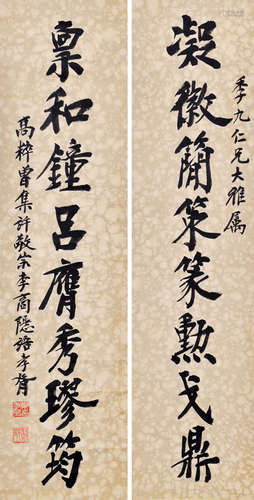 凝徽簡策篆勳戈鼎
季九仁兄大雅属
禀和鐘呂膺秀璆筠
高粹曾集許敬宗李商隱語孝胥